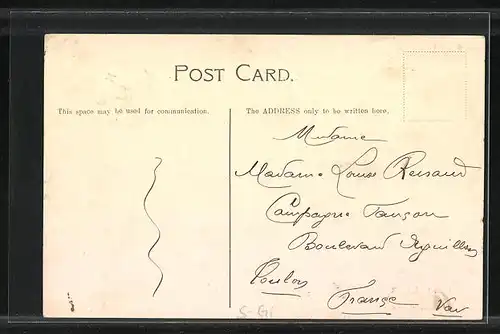 POST CARD.
This space may be used for communication.
The ADDRESS only to be written here.
Madame
Madame Louise
Campagne
Boulevard
Toulon
France Var
S-Gi